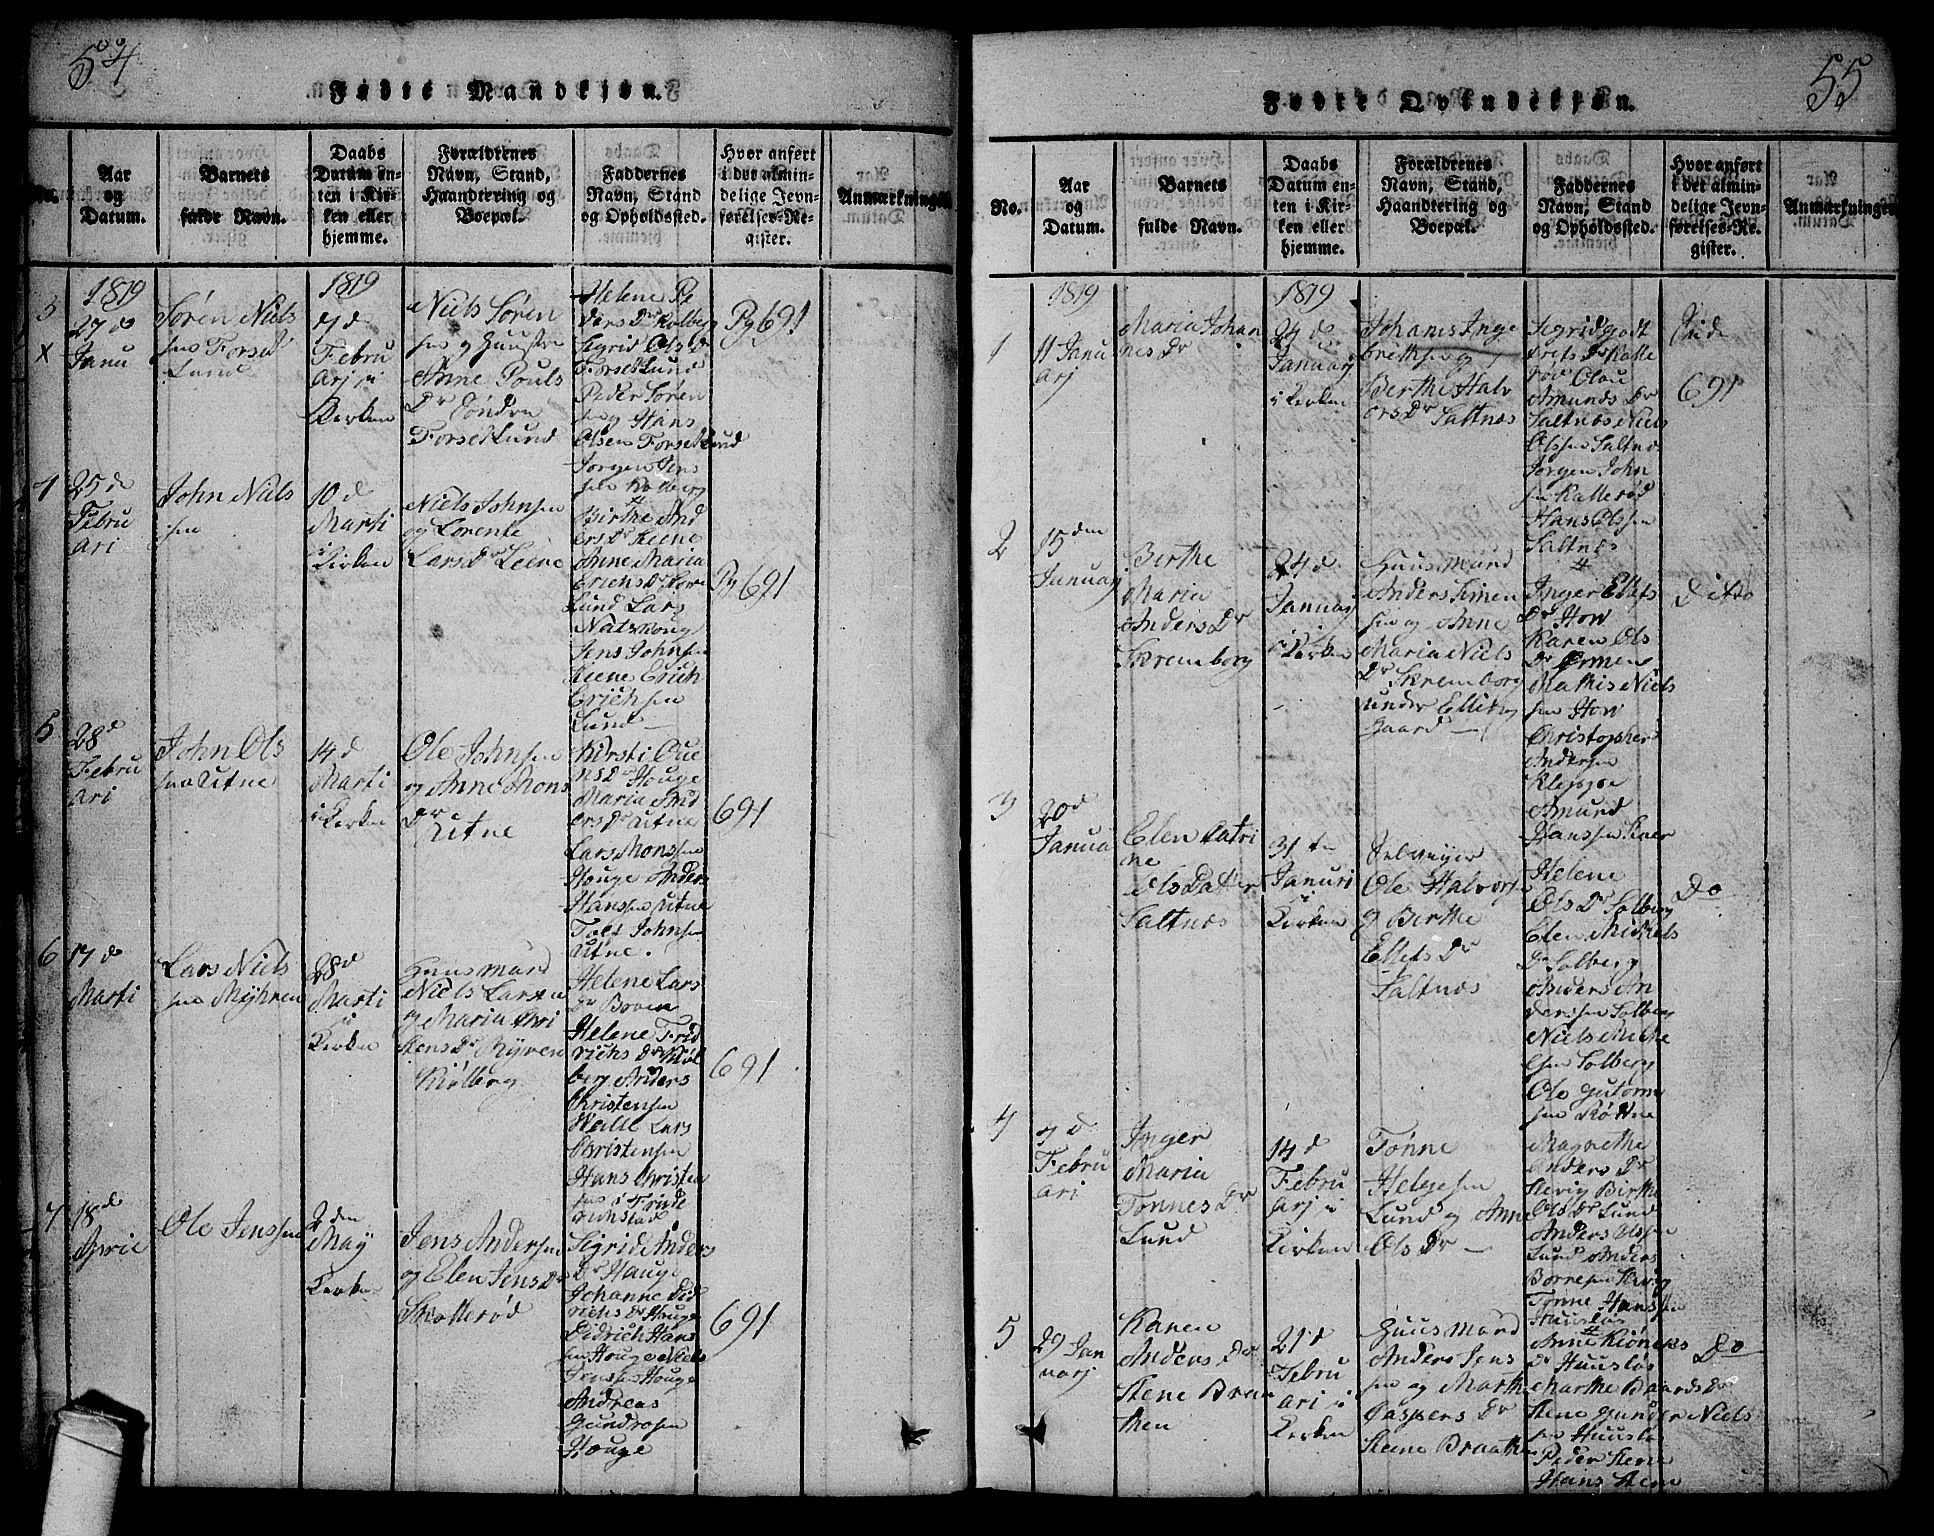 54
Fødte Mandkjøn.
No.
Aar
og
Datum.
Barnets
fulde Navn.
Daabs
Datum en-
ten i Kir-
ken eller
hjemme.
Forældrenes
Navn, Stand,
Haandtering og
Boepæl.
Faddernes
Navn, Stand
og Opholdssted.
Hvor anført
i det almin-
delige Jevn-
førelses-Re-
gister.
Anmærkninger
3
x
1819
27 de
Janu
Søren Niels
sen Forset
Lund
1819
7 d
Febru
arj i
Kirken
Niels Søren
sen og Huustr
Anne Pouls
Dr Søndre
ForsetLund
Helene Pe
ders Dr Kolberg
Sigrid Ols Dr
ForsetLund
Peder Søren
sen og Hans
Olsen ForsetLund
Jørgen Jens
sen Kolberg
Pg 691
25 de
Febru
ari
John Niels
sen
10 d
Marti
i
Kirken
Niels Johnsen
og Lorente
Lars Dr Leene
Birthe And
ers Dr Keene
Anne Maria
Erichs Dr
Lund Lars
Natskoug
Jens Johnsen
Keene Erich
Erichsen
Lund
Pg 691
5
28 d
Febru
ari
John Ols
sen Utne
14 d
Marti
i Kirken
Ole Johnsen
og Anne Mons
Dr
Utne
Kirsti Que
ns Dr Houge
Maria And
ers Dr Utne
Lars Monssen
Houge Anders
Hanssen Utne
Tolf Johnsen
Utne.
691
6
17 d
Marti
Lars Niels
sen Myhren
28 d
Marti
i
Kirken
Huusmand
Niels Larsen
og Maria Chri
stens Dr Myren
Kiølberg
Helene Lars
Dr Broen
Helene Frid
richs Dr Kiøl
berg Anders
Christensen
Lars
Christensen
Hans Christen
sen i Fride
richstad
691
7
18 d
Aprie
Ole Jenssen
2 den
May
i
Kirken
Jens Andersen
og Elen Jens Dr
Skollerød
Sigrid Anders
Dr Hauge
Johanne Did
richs Dr Houge
Didrich Hans
sen Houge Niels
Jenssen Houge
Andreas
Gundrosen
Houge
691
55
Fødte Qvindekjøn.
No.
Aar
og
Datum.
Barnets
fulde Navn.
Daabs
Datum en-
ten i Kir-
ken eller
hjemme.
Forældrenes
Navn, Stand,
Haandtering og
Boepæl.
Faddernes
Navn, Stand
og Opholdssted.
Hvor anført
i det almin-
delige Jevn-
førelses-Re-
gister.
Anmærkninger
1
1819
11 Janu
arj
Maria Johan
nes Dr
1819
24 d
Januarj
i Kirken
Johanis Inge
brethsen og
Berthe Halv
ors Dr Saltnæs
Sigrid
Dr Kalle
rød Olau
Amunds Dr
Saltnæs Niels
Olssen Saltnæs
Jørgen John
sen Kallerød
Hans Olssen
Saltnæs
Side
691
2
15 den
Januarj
Berthe
Maria
Anders Dr
Skremborg
24 d
Januarj
i Kirken
Huusmand
Anders Simen
sen og Anne
Maria Niels
Dr Skremborg
under Elleby
gaard
Inger Ellefs
Dr How
Karen Ols
Dr Ørmen
Mathis Niels
sen How
Christopher
Andersen
Kleppe
Amund
Hanssen Kiær
Ditto
3
20 d
Janua
Elen Catri
ne
Ols Datter
Saltnæs
31 te
Januri
i
Kirken
Selveijer
Ole Halvors
g Berthe
Ellefs Dr
Saltnæs
Helene
Ols Dr Solberg
Elen Mickels
Dr Solberg
Anders An
dersen Solberg
Niels Micke
lsen Solberg
Ole Gutorm
sen Røstne
Do
4
7 d
Febru
ari
Inger
Maria
Tønnes Dr
Lund
14 d
Febru
arj i
Kirken
Tønne
Helgesen
Lund og Anne
Ols Dr
Magnethe
Anders Dr
Skevig Birthe
Ols Dr Lund
Anders Olssen
Lund Anders
Børresen Skevig
Tønne Hanssen
Huusløs
5
29 Jan
uarj
Karen
Anders Dr
Stene Braa
then
21 d
Febru
ari i
Kirken
Huusmand
Anders Jens
sen og Marthe
Caspers Dr
Steene Braathe
Anne Kiønichs
Dr Huusløs
Marthe Baards Dr
Stene Gunder Niels
sen Huusløs
Peder Stene
Hans Stene
Do